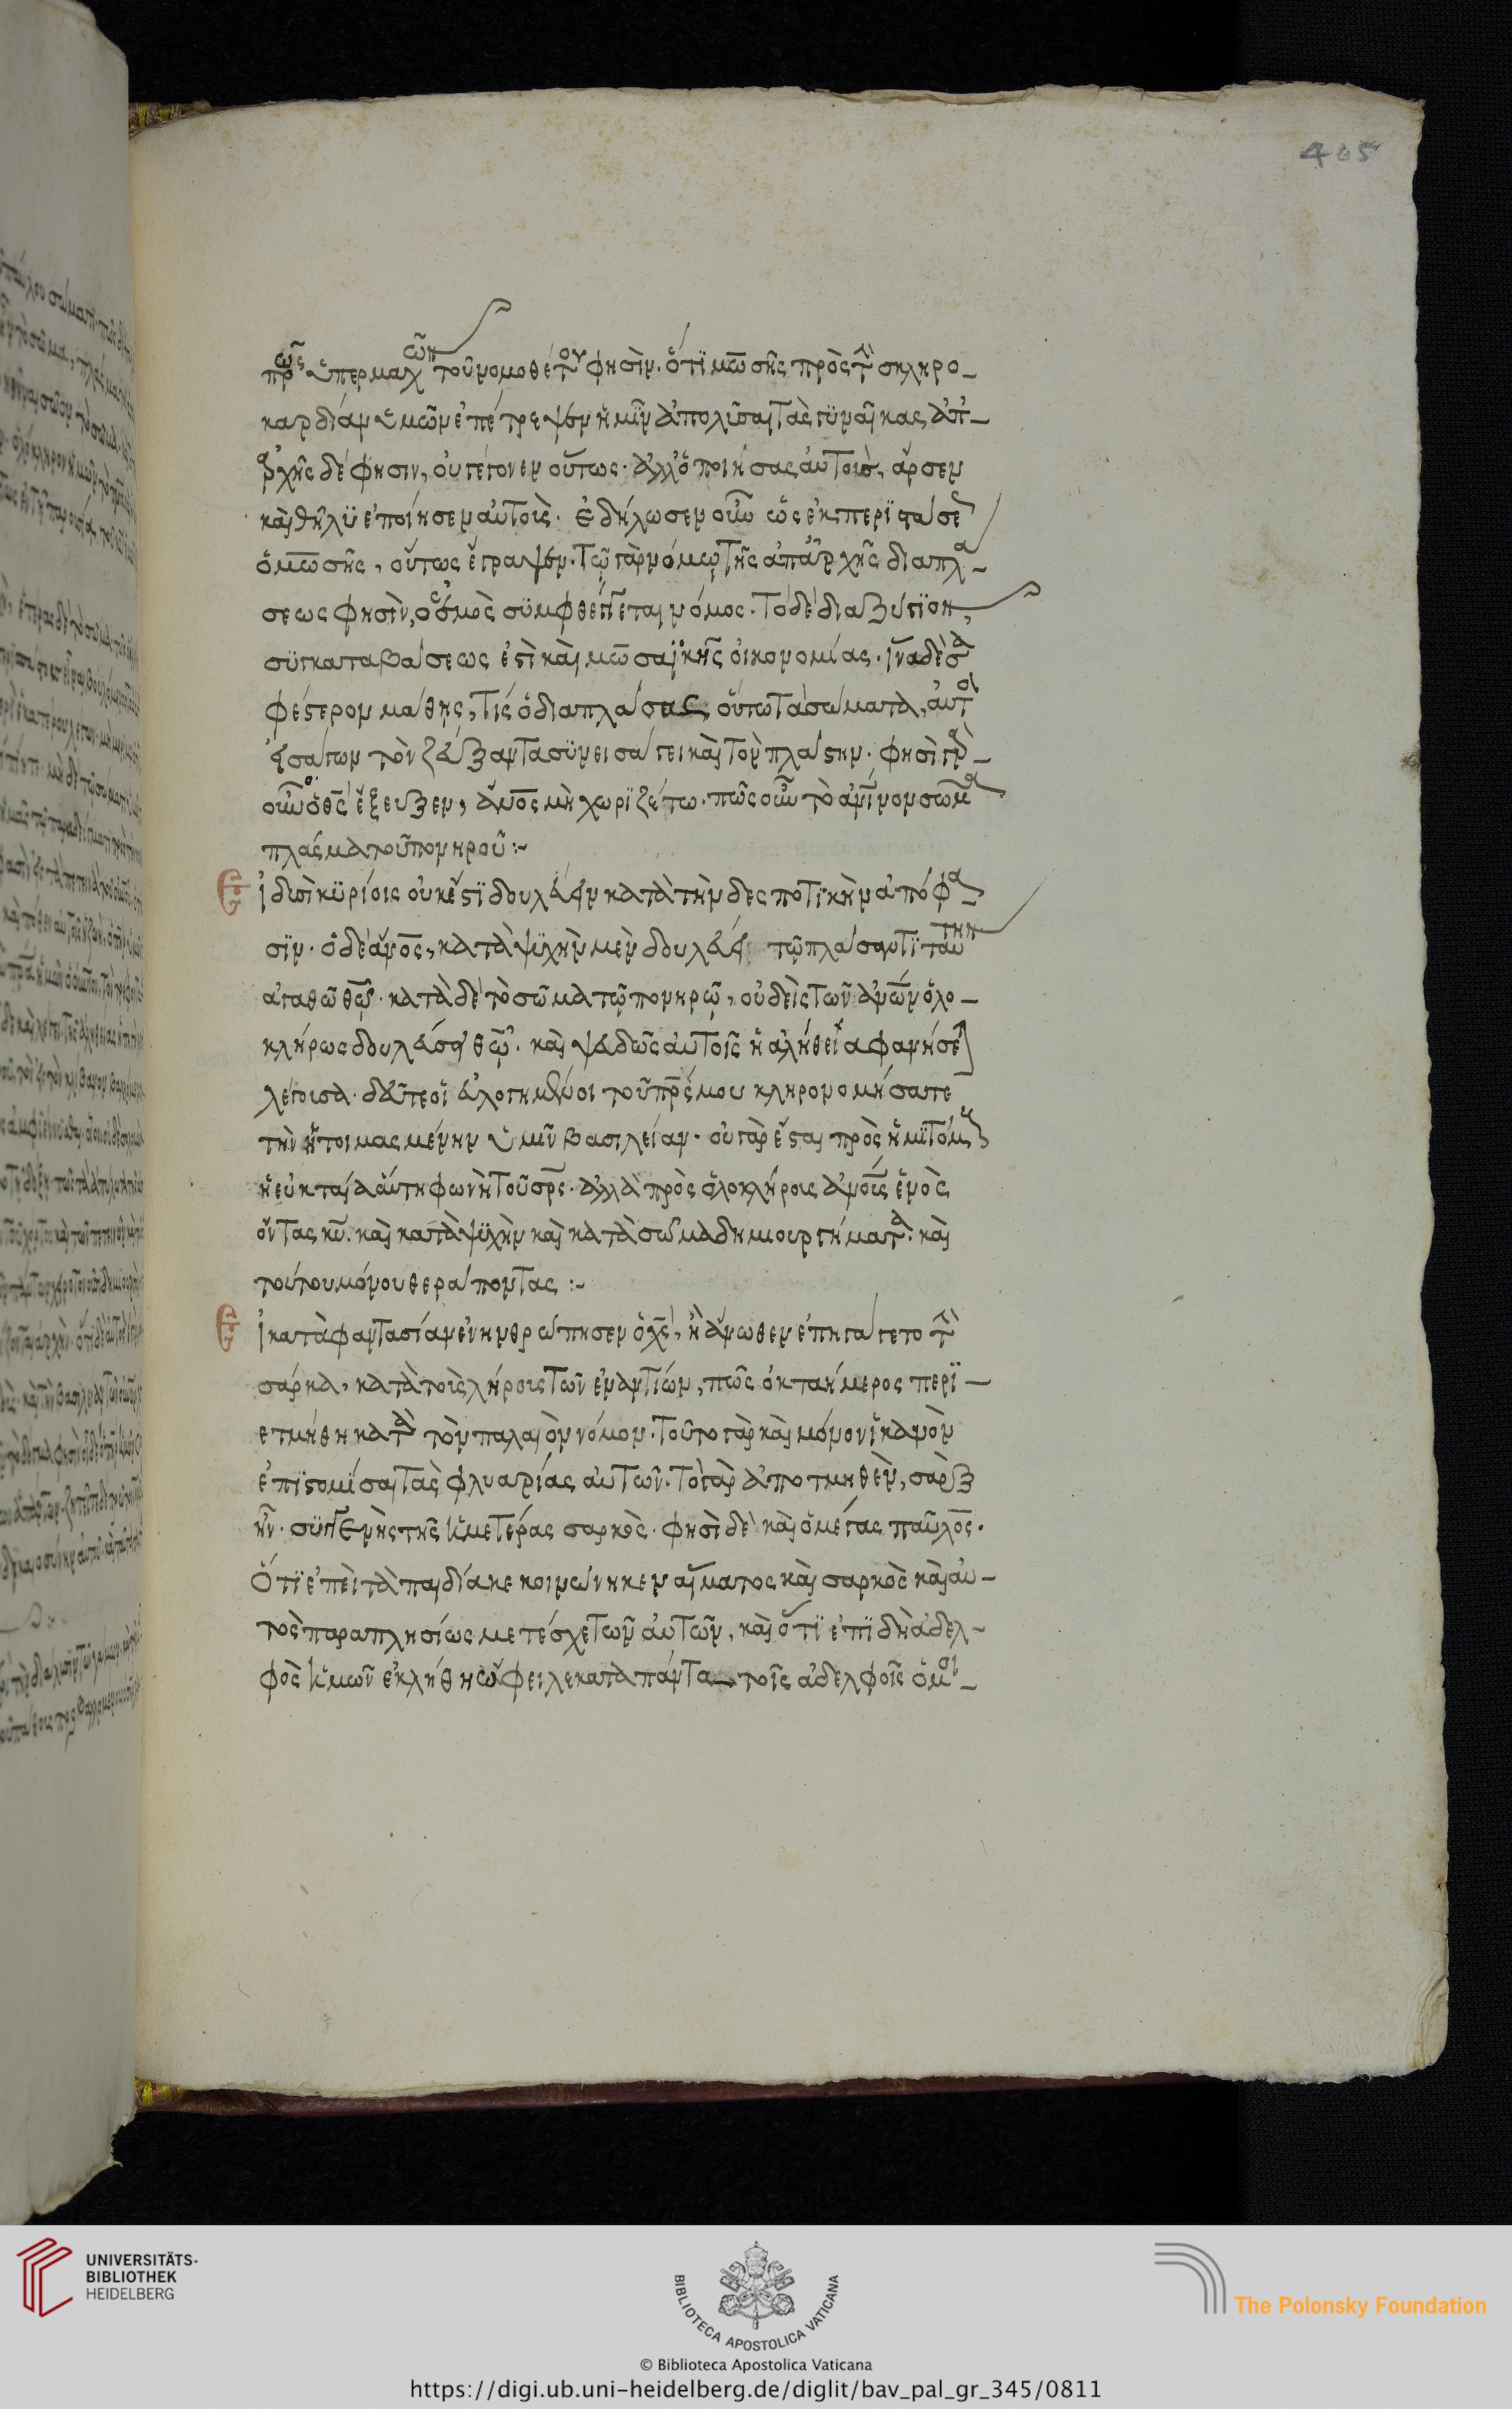 405
πρῶς ὑπερμαχῶν τοῦ νομοθέτου φησὶν. ὅτι μωσῆς πρὸς τὴν σκληρο-
καρδίαν ὑμῶν ἐπέτρεψεν ἡμῖν ἀπολῦσαι τὰς γυναῖκας ἀπ-
ἀρχῆς δέ φησιν, οὐ γέγονεν οὕτως. ἀλλ' ὁ ποιήσας αὐτοὺς, ἄρσεν
καὶ θῆλυ ἐποίησεν αὐτοῖς. ἐδήλωσεν οὖν ὡς ἐκ περιστάσε
ὁ μωσῆς, οὕτως ἔγραψεν. τῷ γὰρ νόμῳ τῆς ἀπ' ἀρχῆς διαπλά-
σεως φησὶν, ὁ ἐμὸς συμφθέγγεται νόμος. τὸ δὲ διαζύγιον,
συγκαταβάσεως ἐστὶ καὶ μωσαϊκῆς οἰκονομίας. ἵνα δὲ σα
φέστερον μάθῃς, τίς ὁ διαπλάσας οὕτω τὰ σώματα, αὐτοῖ
εἰσάγων τὸν ζεύξαντα συνεισάγει καὶ τὸν πλάστην. φησὶ γὰρ-
οὓς ὁ θς ἔζευξεν, ἄνος μὴ χωριζέτω. πῶς οὖν τὸ ἀνινον σῶμα
πλάσμα τοῦ πονηροῦ:-
Εἰ δυσὶ κυρίοις οὐκ ἔστι δουλεύειν κατὰ τὴν δεσποτικὴν ἀπόφα
σιν. ὁ δὲ ἄνος, κατὰ ψυχὴν μὲν δουλεύει τῷ πλάσαντι ταύτην
ἀγαθῷ θῷ. κατὰ δὲ τὸ σῶμα τῷ πονηρῷ, οὐδεὶς τῶν ἀνων ὁλο-
κλήρως δουλεύσει θῷ. καὶ ψευδὼς αὐτοῖς ἡ ἀλήθεια φανήσε
λέγουσα. δεῦτε οἱ εὐλογημένοι τοῦ πρς μου κληρονομήσατε
τὴν ἡτοιμασμένην ὑμῖν βασιλείαν. οὐ γὰρ ἔσται πρὸς ἡμιτόμους
ἡ εὐκταία αὕτη φωνὴ τοῦ σρς. ἀλλὰ πρὸς ὁλοκλήρους ἀνους ἑνὸς
ὄντας κυ. καὶ κατὰ ψυχὴν καὶ κατὰ σῶμα δημιουργήματα. καὶ
τούτου μόνου θεράποντας :-
Εἰ κατὰ φαντασίαν ἐνηνθρώπησεν ὁ χς, ἢ ἄνωθεν ἐπηγάγετο τὴν
σάρκα, κατὰ τοὺς λήρους τῶν ἐναντίων, πῶς ὀκταήμερος περι-
ετμήθη κατὰ τὸν παλαιὸν νόμον. τοῦτο γὰρ καὶ μόνον ἱκανὸν
ἐπιστομίσαι τὰς φλυαρίας αὐτῶν. τὸ γὰρ ἀποτμηθὲν, σὰρξ
ἦν. συγγενὴς τῆς ἡμετέρας σαρκὸς. φησὶ δὲ καὶ ὁ μέγας παῦλος.
ὅτι ἐπεὶ τὰ παιδία κεκοινώνηκεν αἵματος καὶ σαρκὸς καὶ αὐ-
τὸς παραπλησίως μετέσχε τῶν αὐτῶν, καὶ ὅτι ἐπιδὴ ἀδελ-
φὸς ἡμῶν ἐκλήθη ὤφειλε κατὰ πάντα τοῖς ἀδελφοῖς ὁμοι-
UNIVERSITÄTS-
BIBLIOTHEK
HEIDELBERG
BIBLIOTECA APOSTOLICA VATICANA
The Polonsky Foundation
© Biblioteca Apostolica Vaticana
https://digi.ub.uni-heidelberg.de/diglit/bav_pal_gr_345/0811